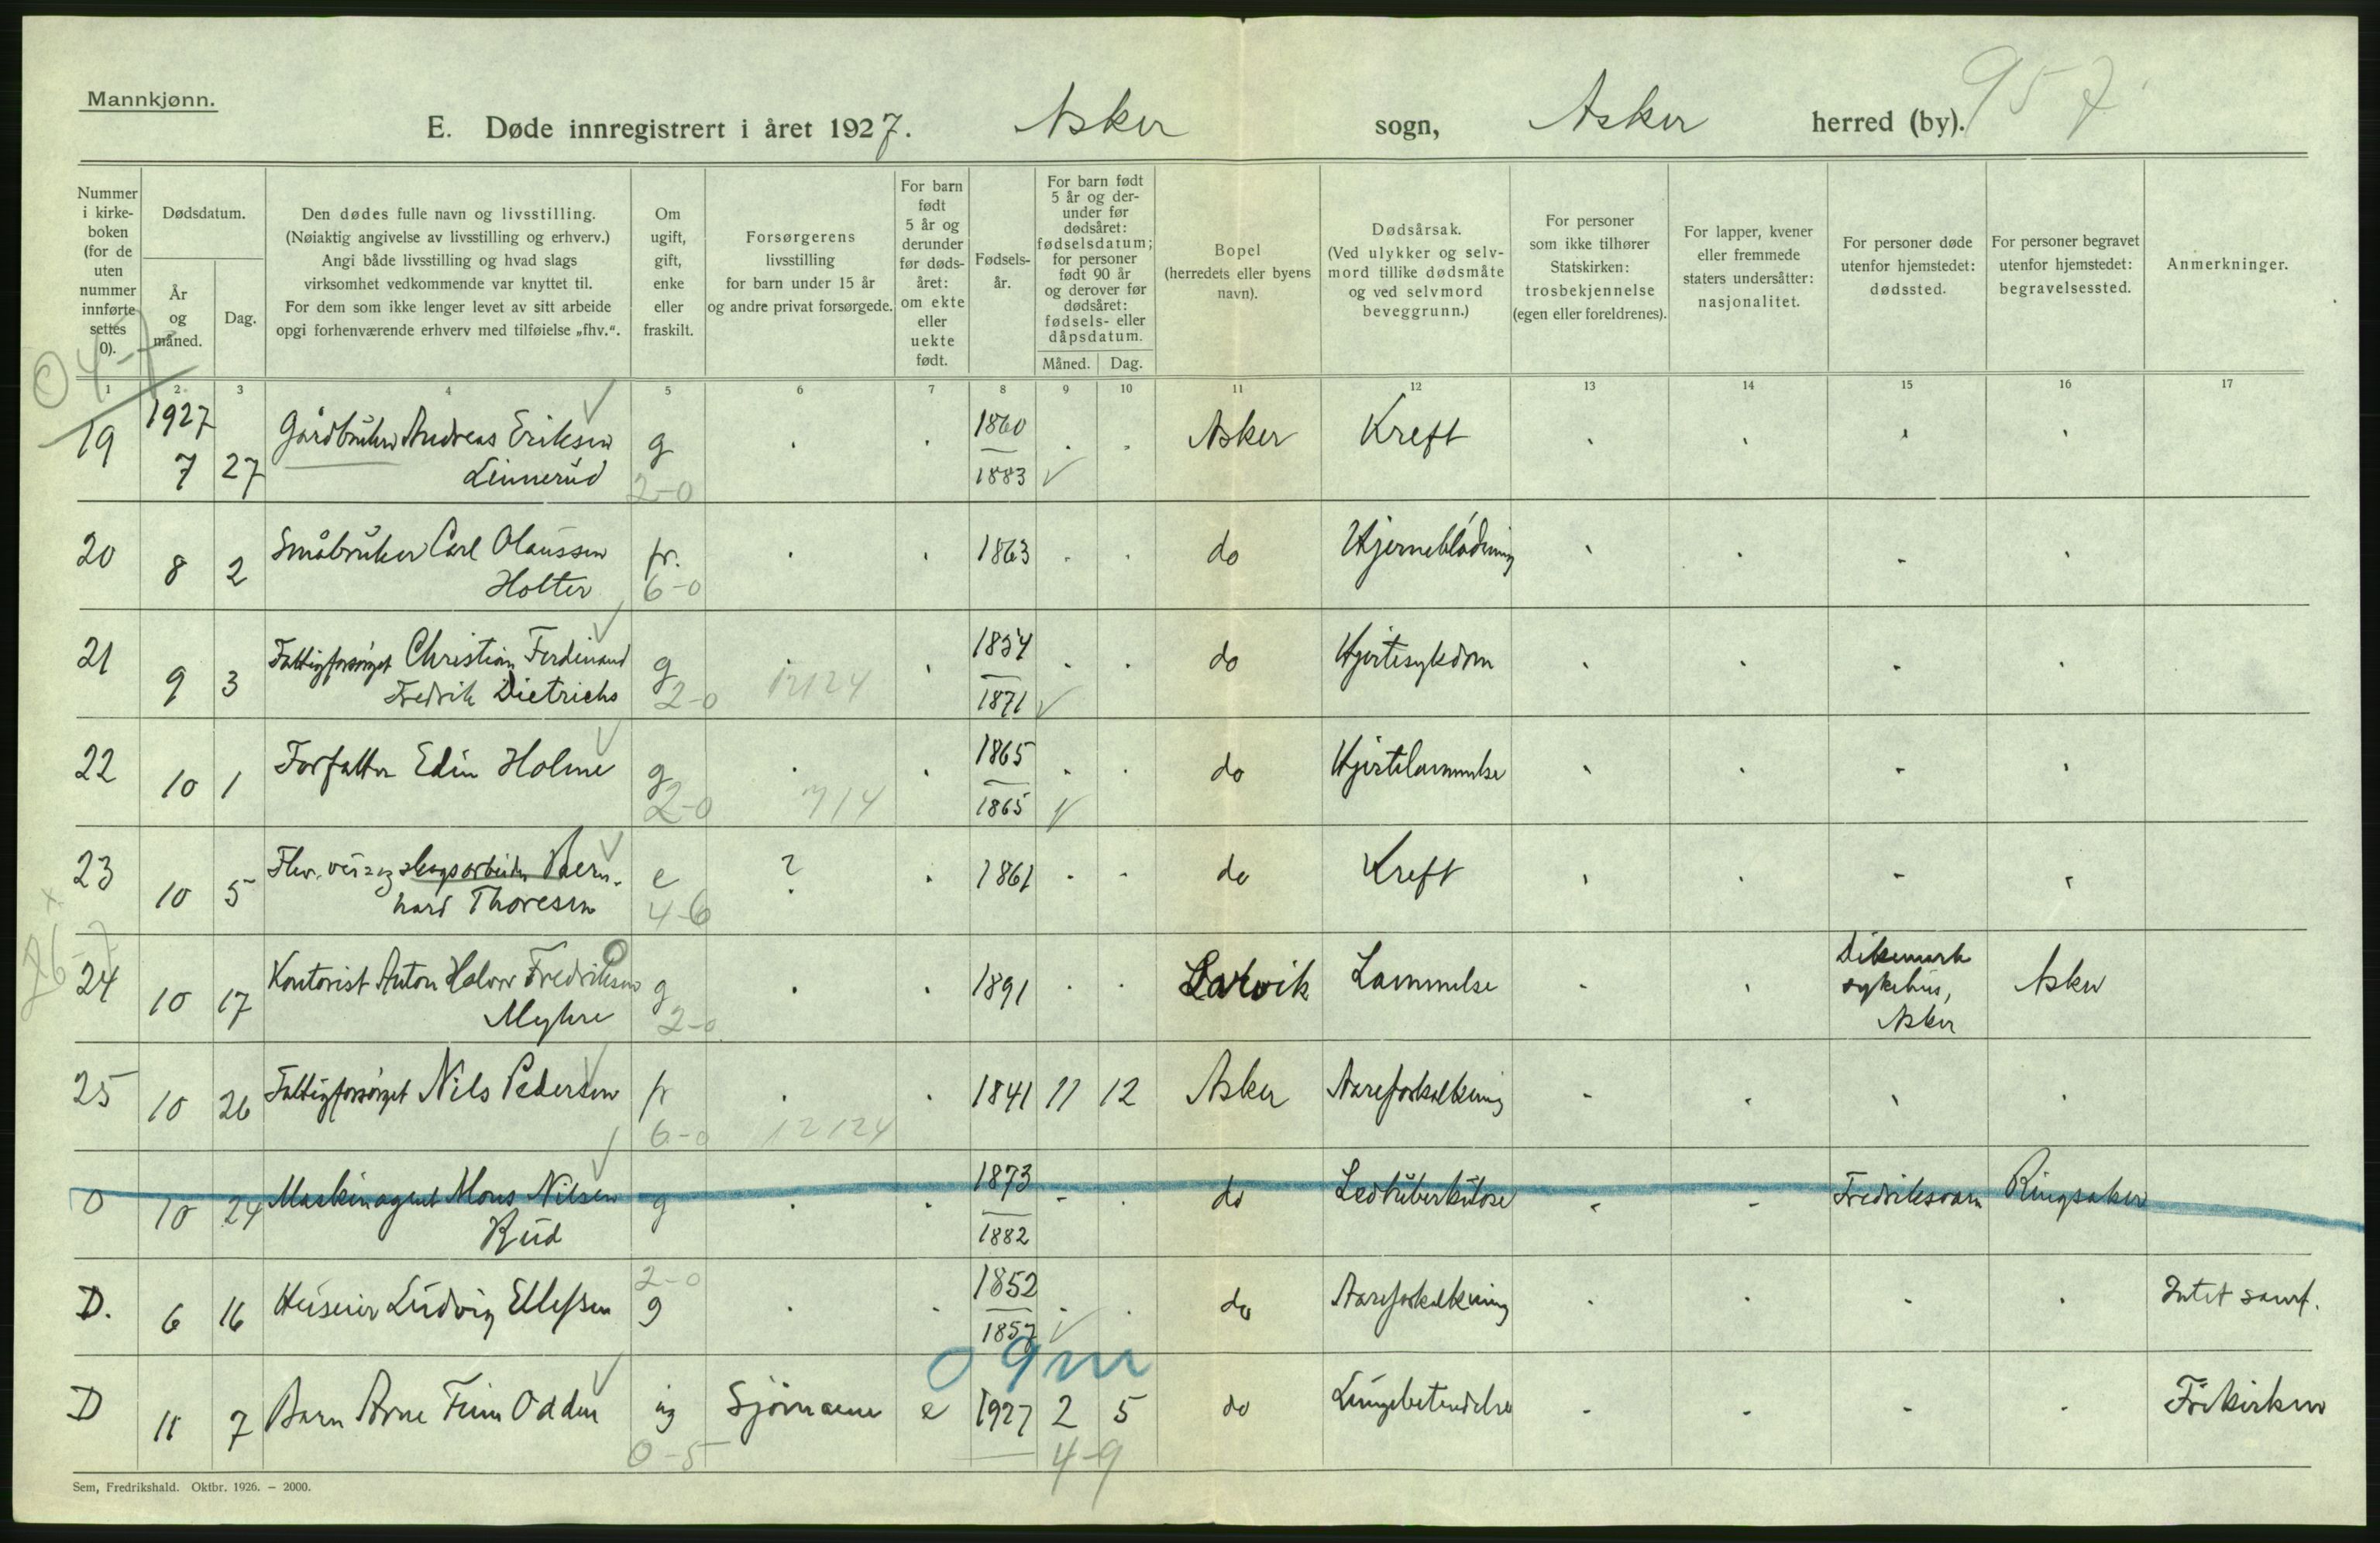 Mannkjønn.
E. Døde innregistrert i året 1927. Asker sogn, Asker herred (by). 957
Nummer i kirke-boken (for de uten nummer innførte settes 0).
Dødsdatum.
År og måned.
Dag.
Den dødes fulle navn og livsstilling.
(Nøiaktig angivelse av livsstilling og erhverv.)
Angi både livsstilling og hvad slags
virksomhet vedkommende var knyttet til.
For dem som ikke lenger levet av sitt arbeide
opgi forhenværende erhverv med tilføielse „fhv.“.
Om ugift, gift, enke eller fraskilt.
Forsørgerens
livsstilling
for barn under 15 år
og andre privat forsørgede.
For barn født 5 år og derunder før døds-året: om ekte eller uekte født.
Fødsels-år.
For barn født 5 år og der-under før dødsåret: fødselsdatum; for personer født 90 år og derover før dødsåret: fødsels- eller dåpsdatum.
Måned. Dag.
Bopel
(herredets eller byens
navn).
Dødsårsak.
(Ved ulykker og selv-
mord tillike dødsmåte
og ved selvmord
beveggrunn.)
For personer
som ikke tilhører
Statskirken:
trosbekjennelse
(egen eller foreldrenes).
For lapper, kvener
eller fremmede
staters undersåtter:
nasjonalitet.
For personer døde
utenfor hjemstedet:
dødssted.
For personer begravet
utenfor hjemstedet:
begravelsessted.
Anmerkninger.
1 2 3 4 5 6 7 8 9 10 11 12 13 14 15 16 17
19 1927 7 27 Gårdbruker Andreas Eriksen g 1860 Asker Kreft
Linnerud 2-0 1883
20 8 2 Småbruker Carl Olaussen fr. 1863 do Hjerneblødning
Holter 6-0
21 9 3 Fattigforsørget Christian Ferdinand g 1854 do Hjertesykdom
Fredrik Dietrichs 2-0 12124 1871
22 10 1 Forfatter Edin Holme g 1865 do Hjertelammelse
2-0 714 1865
23 10 5 Fhv. vei- og skogsarbeider Bern- e ? 1861 do Kreft
hard Thoresen 4-6
24 10 17 Kontorist Anton Halvor Fredriksen g 1891 Larvik Lammelse Dikemark sykehus, Asker Asker
Myhre 2-0
25 10 26 Fattigforsørget Nils Pedersen fr 1841 11 12 Asker Aareforkalkning
6-0 12124
0 10 24 Maskinagent Mons Nilsen g 1873 do Ledtuberkulose Fredriksvarn Ringsaker
Rud 1882
2-0
D. 6 16 Huseier Ludvig Ellefsen g 1852 do Aareforkalkning Intet samf.
1857
0 9 m
D 11 7 Barn Arne Finn Odden ug Sjømann e 1927 2 5 do Lungebetendelse Frikirken
0-5 4-9
Sem, Fredrikshald. Oktbr. 1926. – 2000.